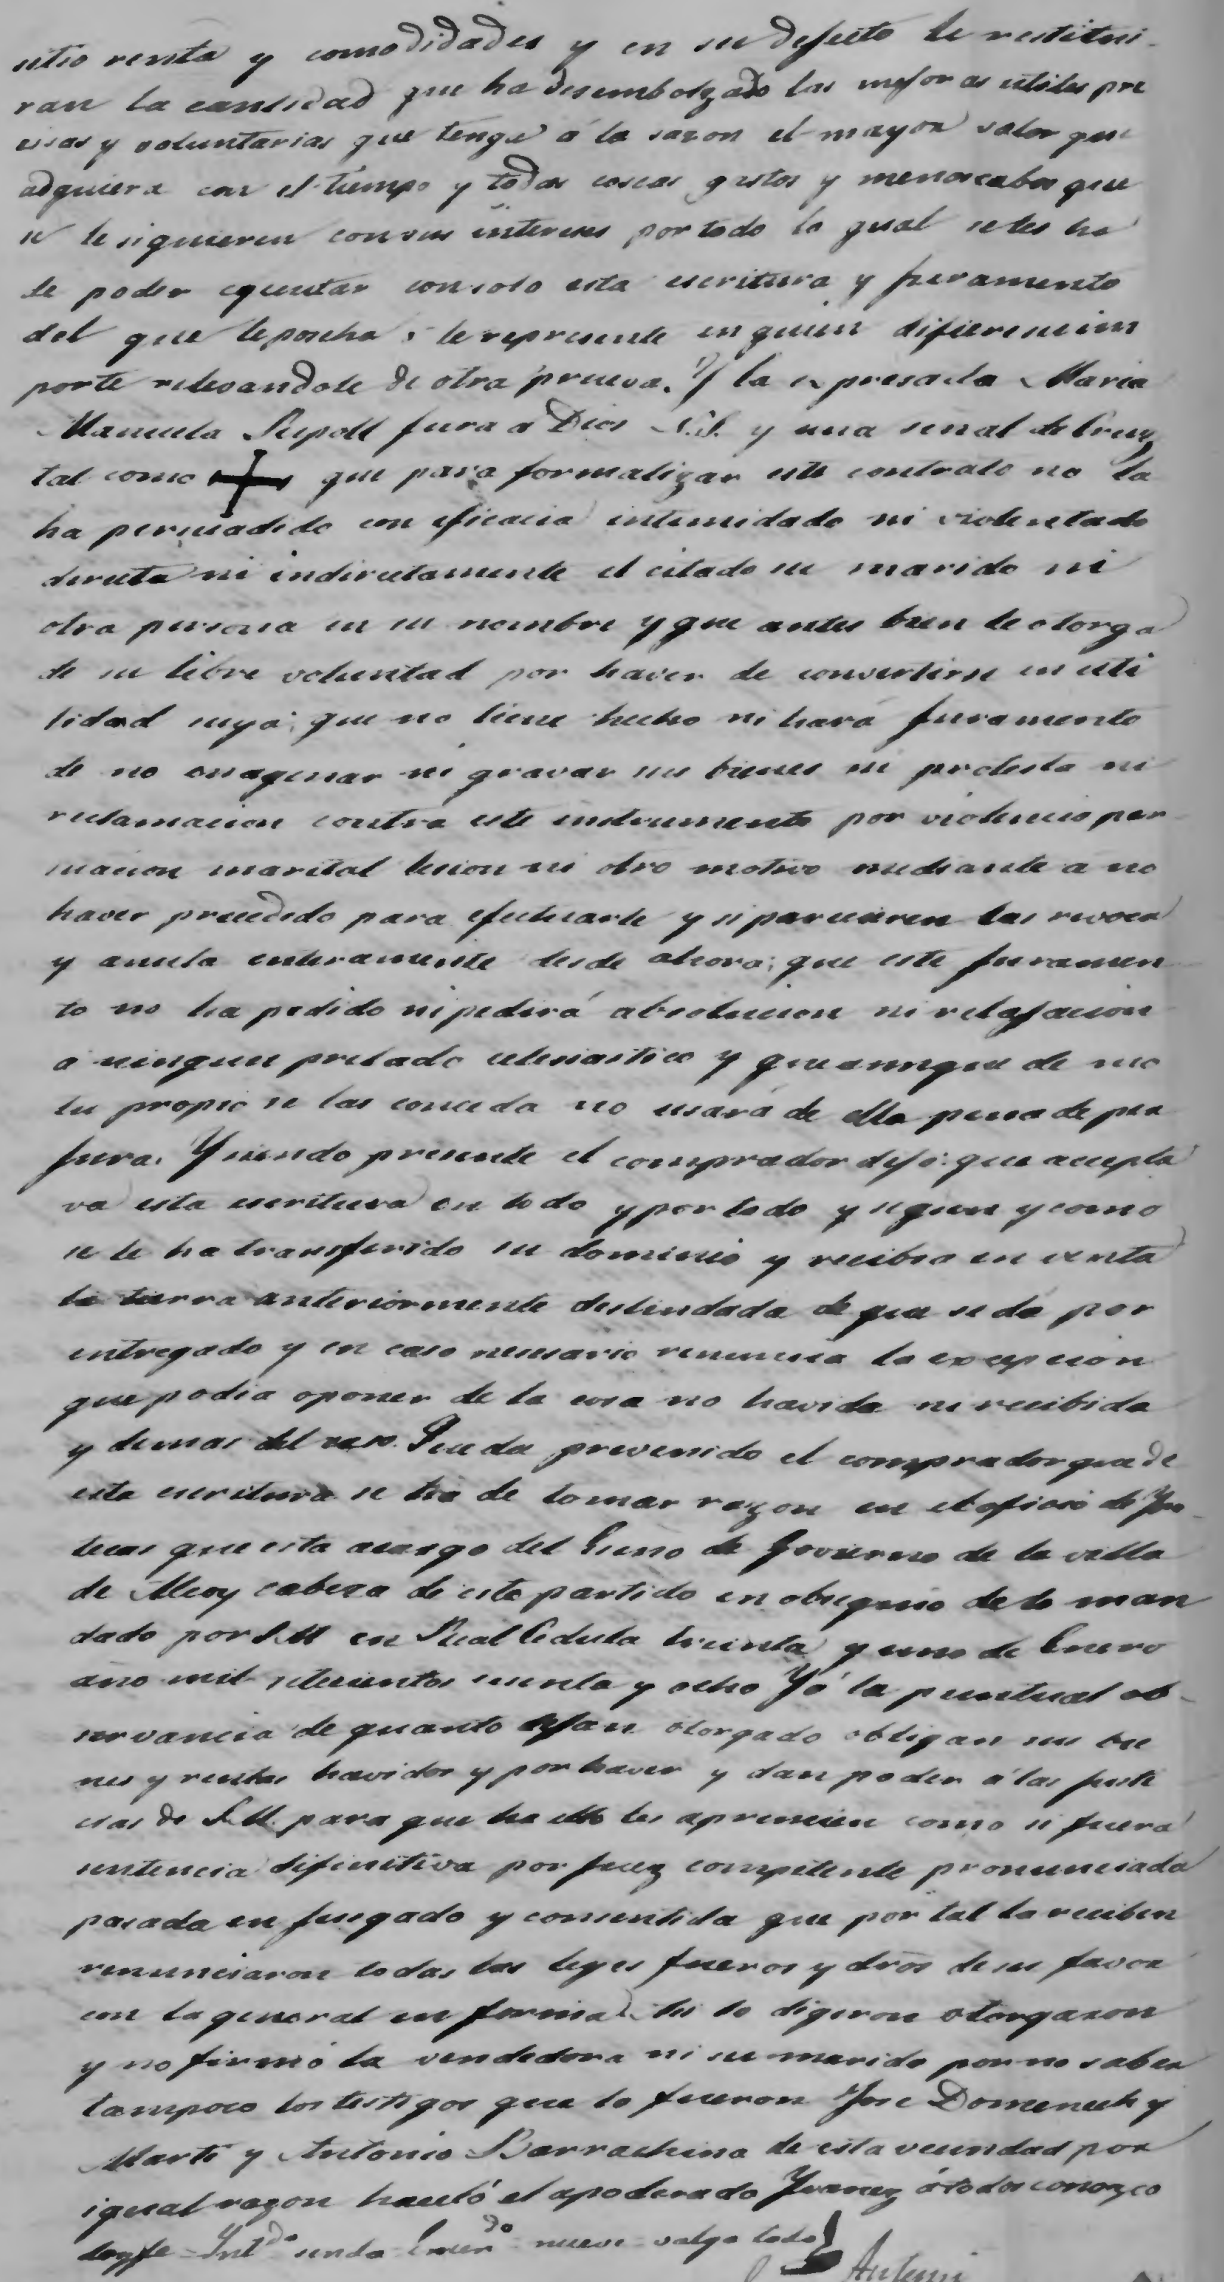 sitio renta y comodidades y en su defecto le restitui-
ran la cantidad que ha desembolzado las mejoras utiles pre
cisas y voluntarias que tenga á la sazon el mayor valor que
adquiera con el tiempo y todas costas gastos y menoscabos que
se le siguieren con sus intereses por todo lo qual se les ha
de poder egecutar con solo esta escritura y juramento
del que le poseha ó le represente en quien difieren su im
porte relevandole de otra prueva. Y la expresada Maria
Manuela Ripoll jura a Dios N.S. y una señal de Cruz
tal como que para formalizar este contrato no la
ha persuadido con eficacia intimidado ni violentado
directa ni indirectamente el citado su marido ni
otra persona en su nombre y que antes bien le otorga
de su libre voluntad por haver de convertirse en uti
lidad suya; que no tiene hecho ni hará juramento
de no enagenar ni gravar sus bienes ni protesta ni
reclamacion contra este instrumento por violencia per
suacion marital lesion ni otro motivo mediante a no
haver precedido para efectuarle y si parecieren las revoca
y anula enteramente desde ahora; que este juramen
to no ha pedido ni pedirá absolucion ni relajacion
a ningun prelado eclesiastico y que aunque de mo
tu propio se las conceda no usará de ella pena de per
jura. Y siendo presente el comprador dijo: que acepta
va esta escritura en todo y por todo y segun y como
se le ha transferido su dominio y recibio en venta
la tierra anteriormente deslindada de que se dá por
entregado y en caso necesario renuncia la excepcion
que podia oponer de la cosa no havida ni recibida
y demas del caso. Queda prevenido el comprador que de
esta escritura se ha de tomar razon en el oficio de Ypo
tecas que esta a cargo del Essno de Govierno de la villa
de Alcoy cabeza de este partido en obsequio de lo man
dado por S.M. en Real Cedula treinta y uno de Enero
año mil setecientos sesenta y ocho Y á la puntual ob-
servancia de quanto dejan otorgado obligan sus bie
nes y rentas havidos y por haver y dan poder á las justi
cias de S.M. para que ha ello les apremien como si fuera
sentencia difinitiva por juez competente pronunciada
pasada en jusgado y consentida que por tal la reciben
renunciaron todas las leyes fueros y dros de su favor
con la general en forma. Asi lo digeron otorgaron
y no firmó la vendedora ni su marido por no saber
tampoco los testigos que lo fueron Jose Domenech y
Marti y Antonio Barrachina de esta vecindad por
igual razon haciló el apoderado Yvanez á todos conozco
doy fe = Ent.do nueve = valga todo
Antoni